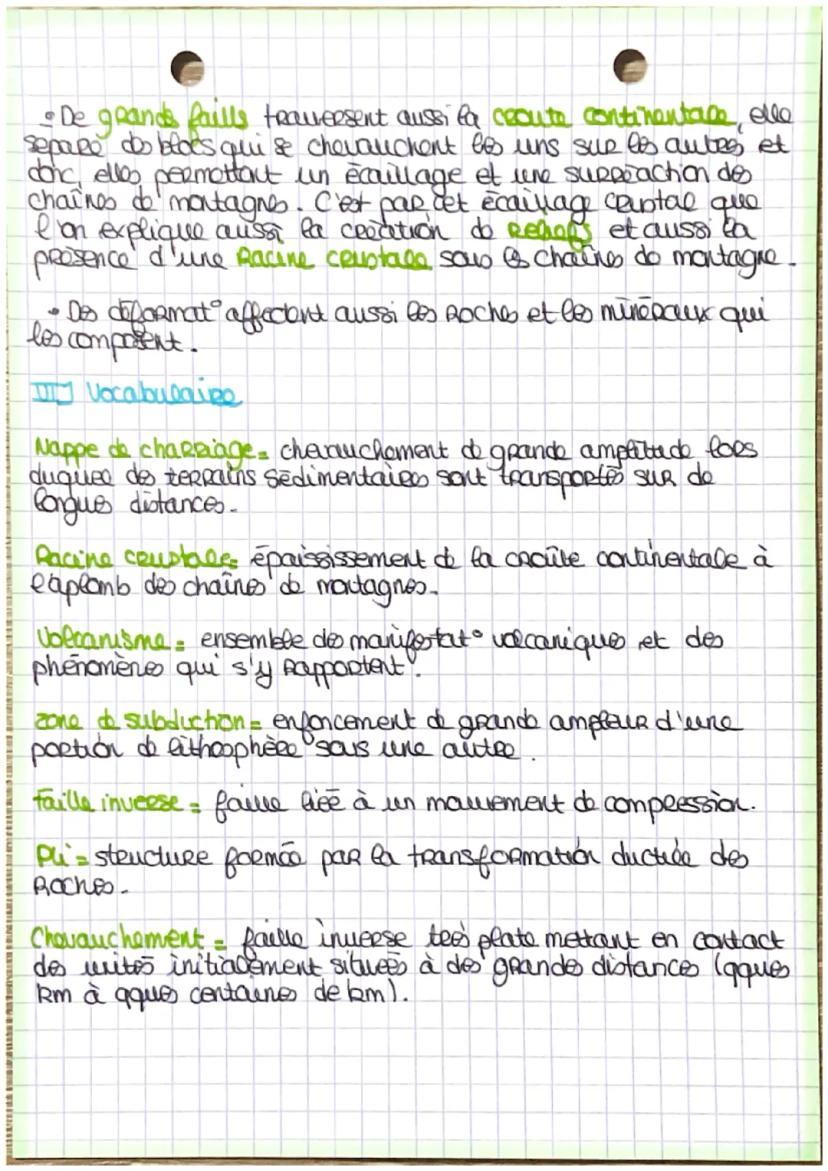 • De grands faills traversent aussi la croute continentale, elle
separe des blocs qui se chevauchent les uns sur les autres et
donc elles permettant un écaillage et une surréaction des
chaînes de montagnes. C'est par cet écaillage crustal que
l'on explique aussi la création de Reliefs et aussi la
présence d'une Racine crustale sous les chaînes de montagne.
• Des déformat° affectent aussi les Roches et les minéraux qui
les composent.
III] Vocabulaire
Nappe de charriage = chevauchement de grande amplitude lors
duquel des terrains sédimentaires sont transportés sur de
longues distances.
Racine crustale = épaississement de la croûte continentale à
l'aplomb des chaînes de montagnes.
Volcanisme = ensemble des manifestat° volcaniques et des
phénomènes qui s'y Rapportent.
zone de subduction = enfoncement de grande ampleur d'une
portion de lithosphère sous une autre.
Faille inverse = faille liée à un mouvement de compression.
Pli = structure formée par la transformation ductile des
Roches.
Chevauchement = faille inverse très plate mettant en contact
des unités initialement situées à des grandes distances (qques
km à qques centaines de km).